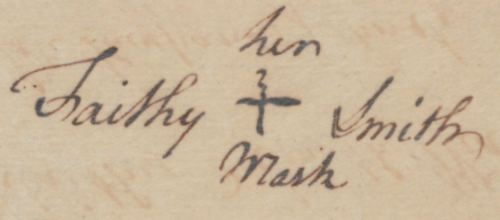 her
Faithy + Smith
Mark